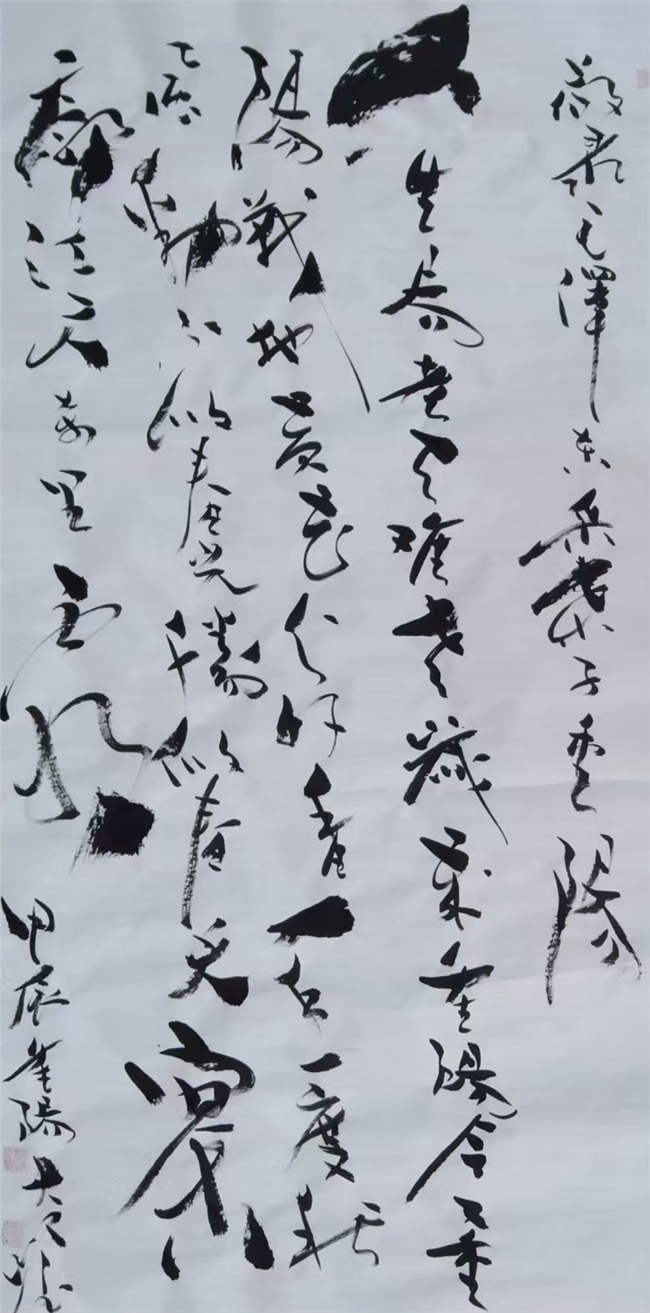 敬录毛澤东采桑子重陽
人生易老天難老歲歲重陽今又重
陽戰地黄花分外香一年一度秋
風勁不似春光勝似春光寥
廓江天万里霜
甲辰重陽